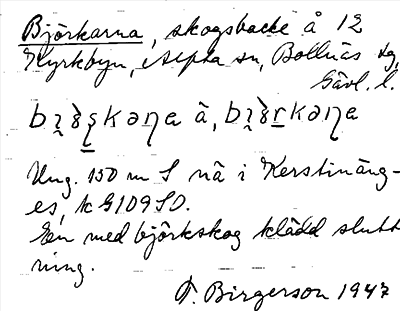 Björkarna, skogsbacke å 12
Kyrkbyn, Alfta sn, Bollnäs tg,
Gävl. l.
Ung. 150 m S nå i Kerstinäng-
es, k G109SO.
En med björkskog klädd slutt
ning.
F. Birgerson 1947